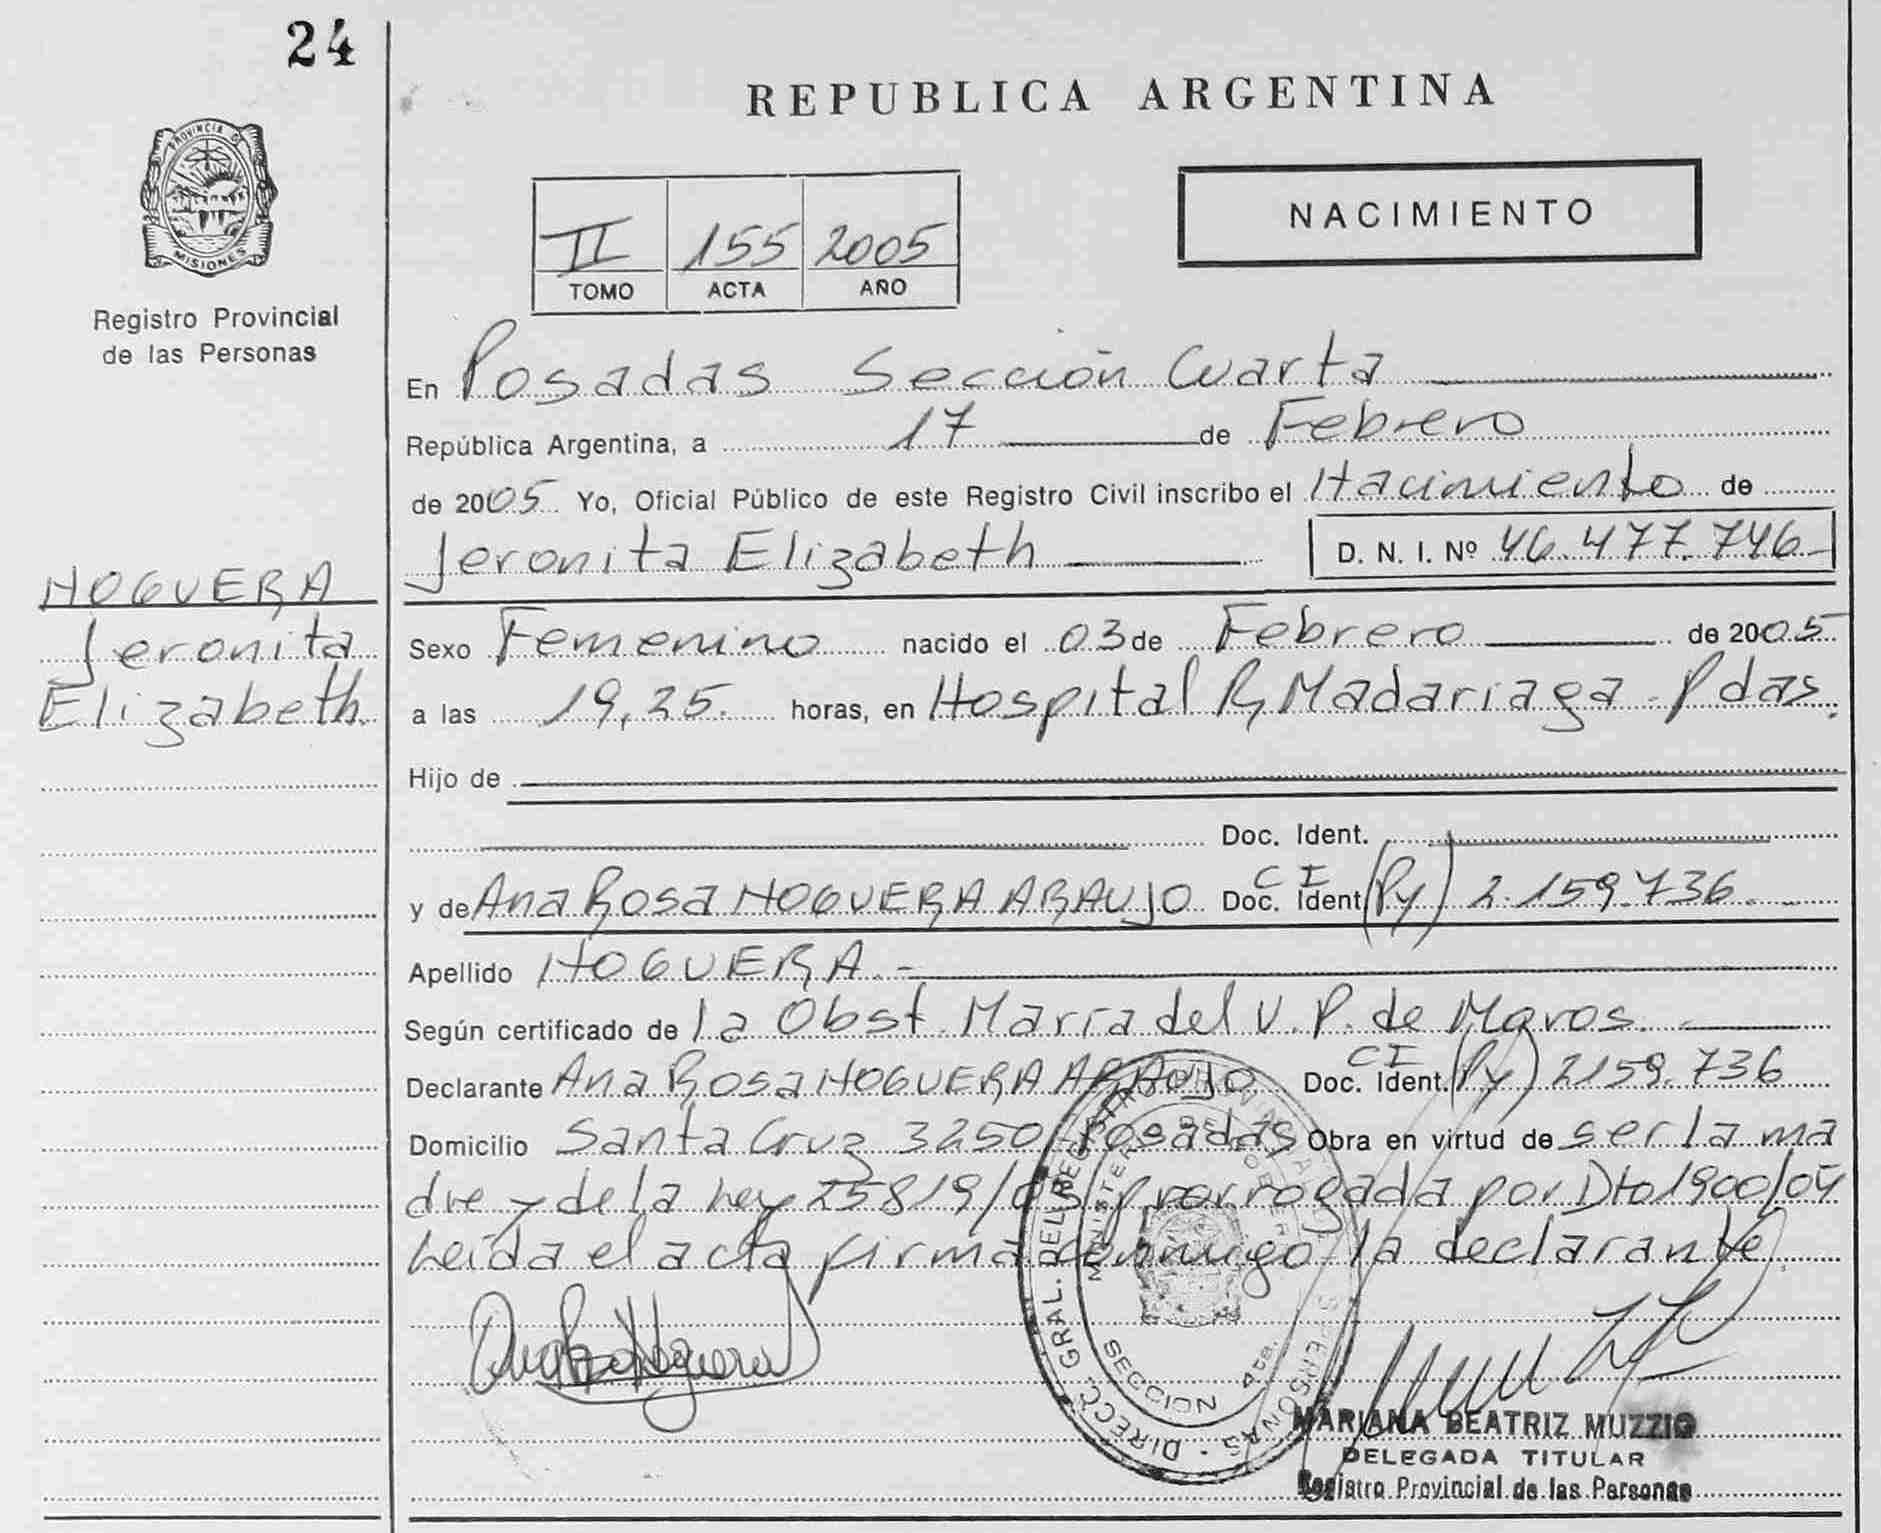 24
REPUBLICA ARGENTINA
PROVINCIA DE
MISIONES
Registro Provincial
de las Personas
II 155 2005
TOMO ACTA AÑO
NACIMIENTO
En Posadas Sección Cuarta
República Argentina, a 17 de Febrero
de 2005 Yo, Oficial Público de este Registro Civil inscribo el Nacimiento de
Jeronita Elizabeth D. N. I. Nº 46.477.746
NOGUERA
Jeronita
Elizabeth
Sexo Femenino nacido el 03 de Febrero de 2005
a las 19,25. horas, en Hospital R. Madariaga - Pdas.
Hijo de
Doc. Ident.
y de Ana Rosa NOGUERA ARAUJO Doc. Ident CI (Py) 2.159.736.
Apellido NOGUERA.-
Según certificado de la Obst. María del V. P. de
Declarante Ana Rosa NOGUERA ARAUJO Doc. Ident. CI (Py) 2159.736
Domicilio Santa Cruz 3250 Posadas Obra en virtud de ser la ma
dre y de la Ley 25819/03 prorrogada por Dto 1900/04
Leída el acta firma conmigo la declarante.
DIRECC. GRAL. DEL REGISTRO PROVINCIAL DE LAS PERSONAS
MINISTERIO DE GOBIERNO
SECCION 4ta.
MARIANA BEATRIZ MUZZIO
DELEGADA TITULAR
Registro Provincial de las Personas